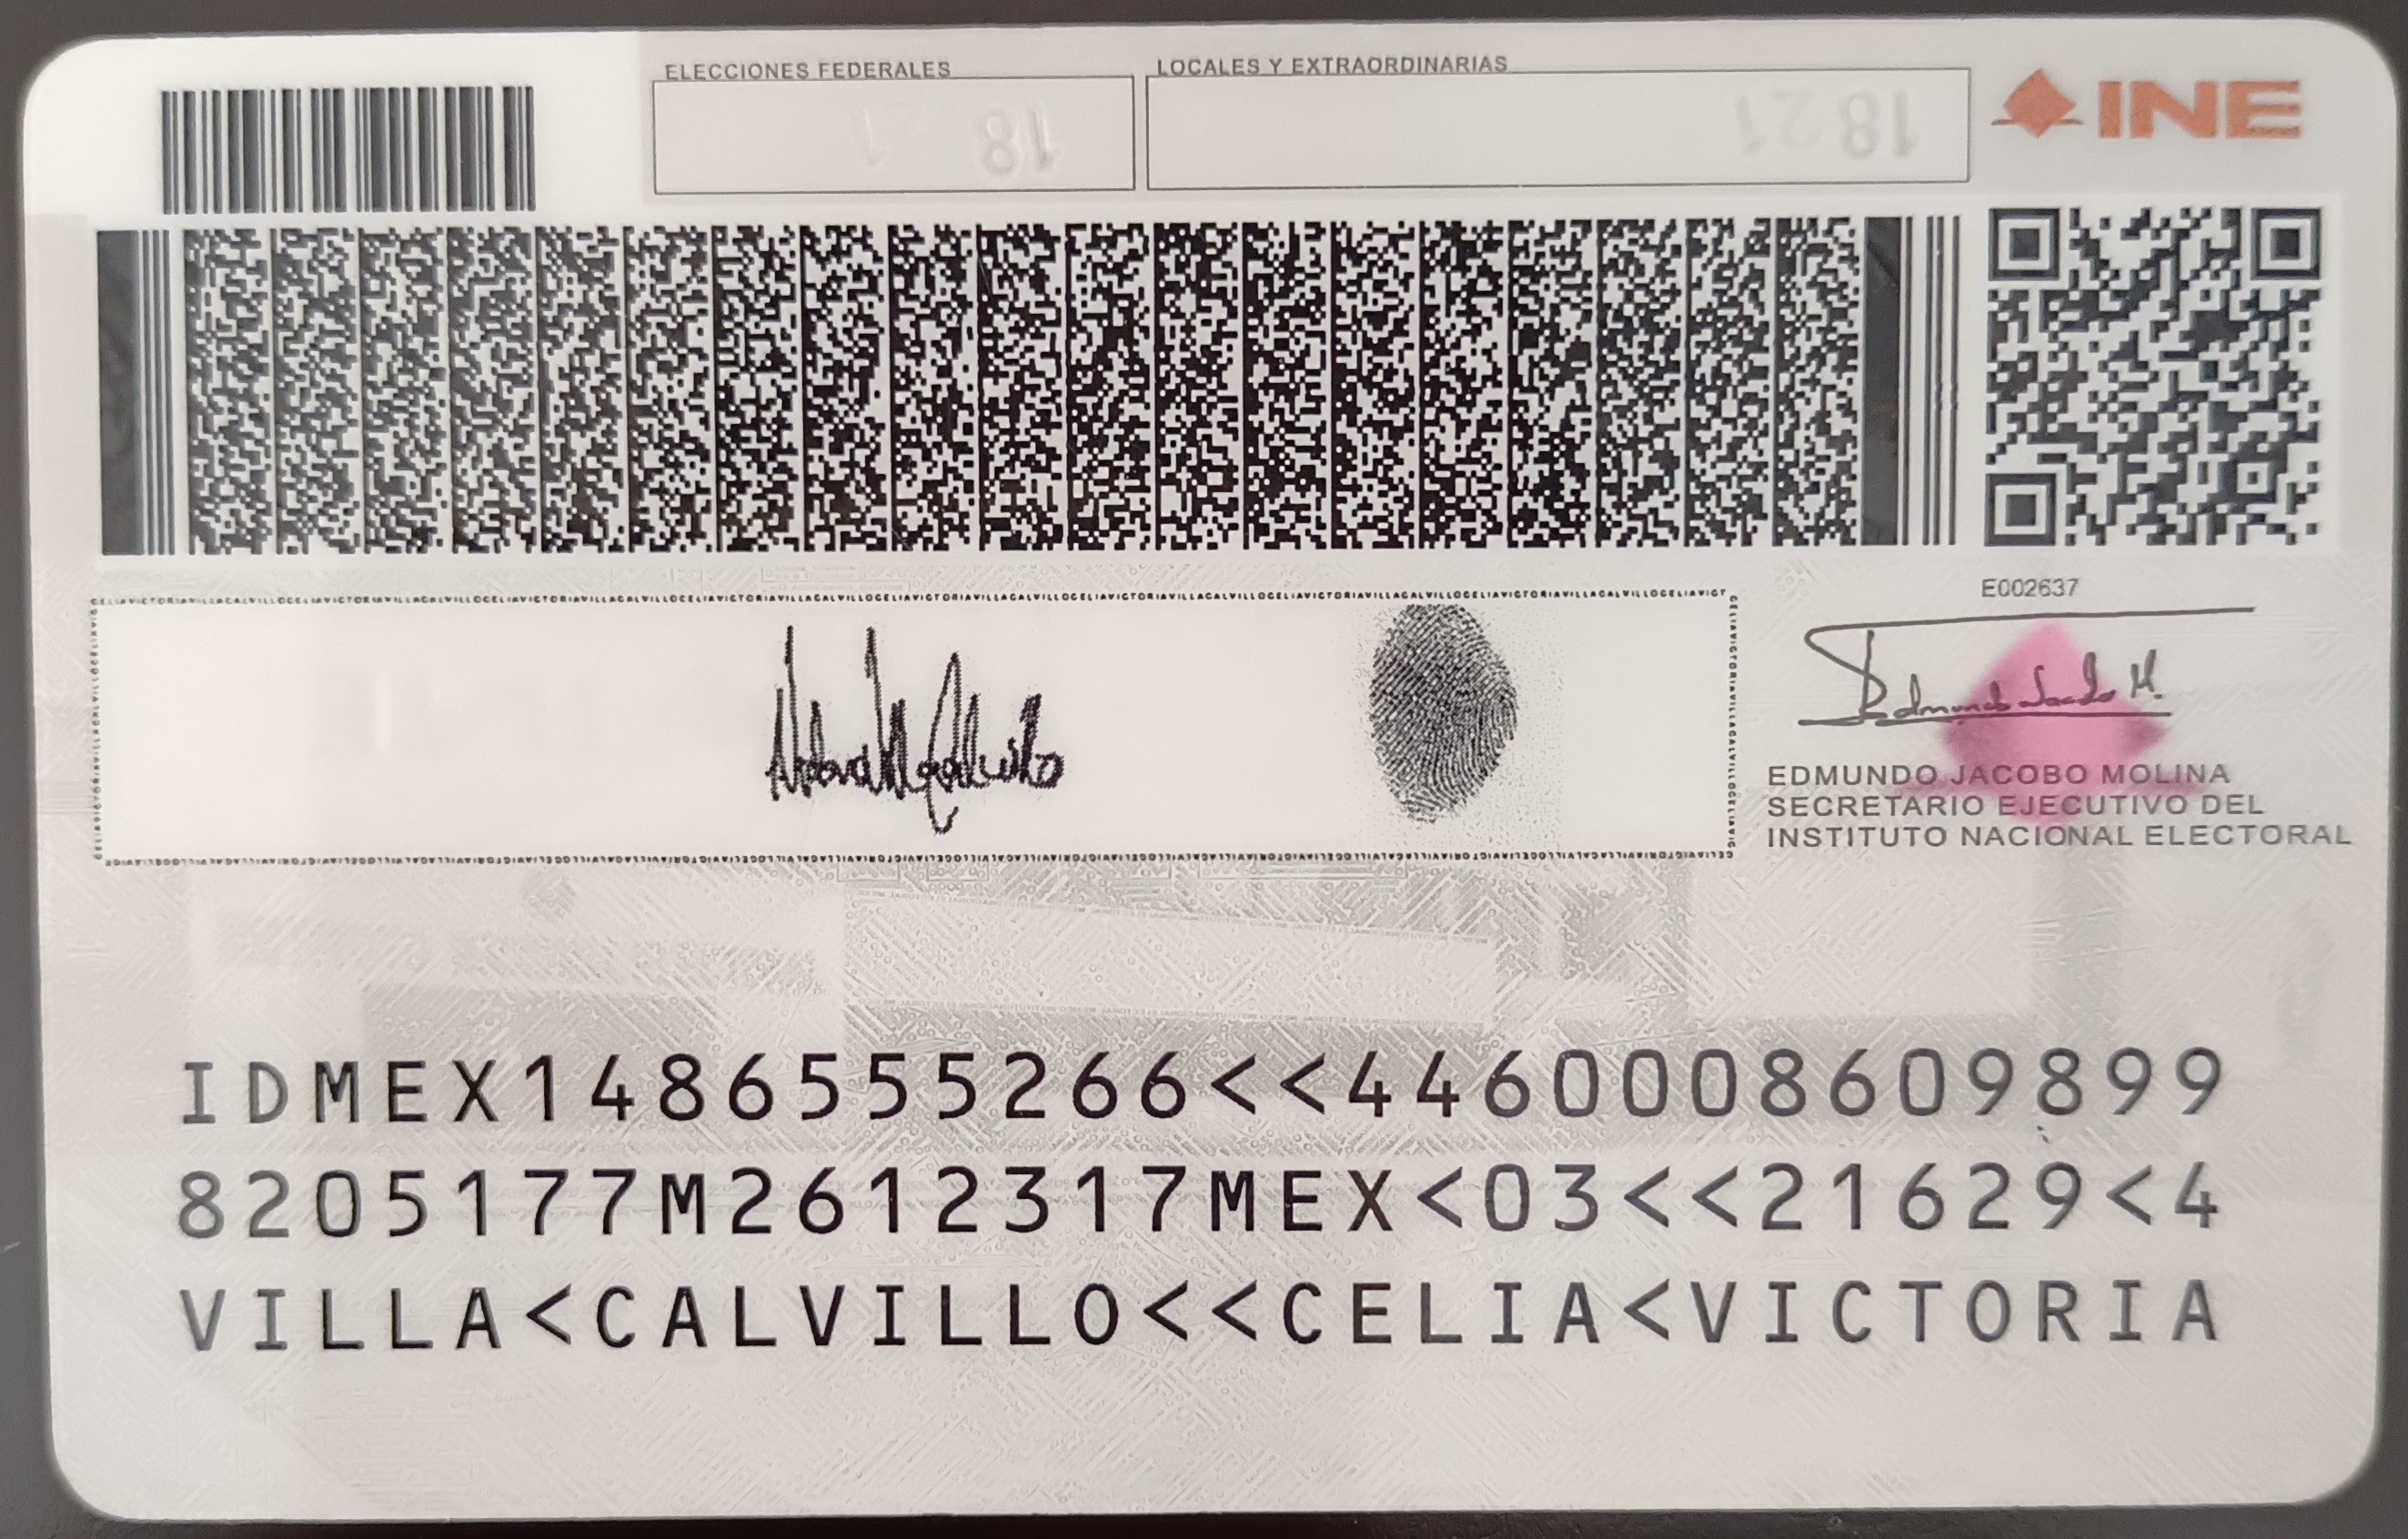 ELECCIONES FEDERALES
LOCALES Y EXTRAORDINARIAS
INE
18 21
18 21
E002637
Edmundo Jacobo M.
EDMUNDO JACOBO MOLINA
SECRETARIO EJECUTIVO DEL
INSTITUTO NACIONAL ELECTORAL
IDMEX1486555266<<4460008609899
8205177M2612317MEX<03<<21629<4
VILLA<CALVILLO<<CELIA<VICTORIA